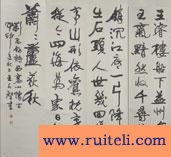 王濬樓船下益州金陵
王氣黯然收千尋鐵
鎖沉江底一片降幡出
石頭人世幾回傷往
事山形依舊枕寒流
從今四海為家日故壘
蕭蕭蘆荻秋
www.ruiteli.com